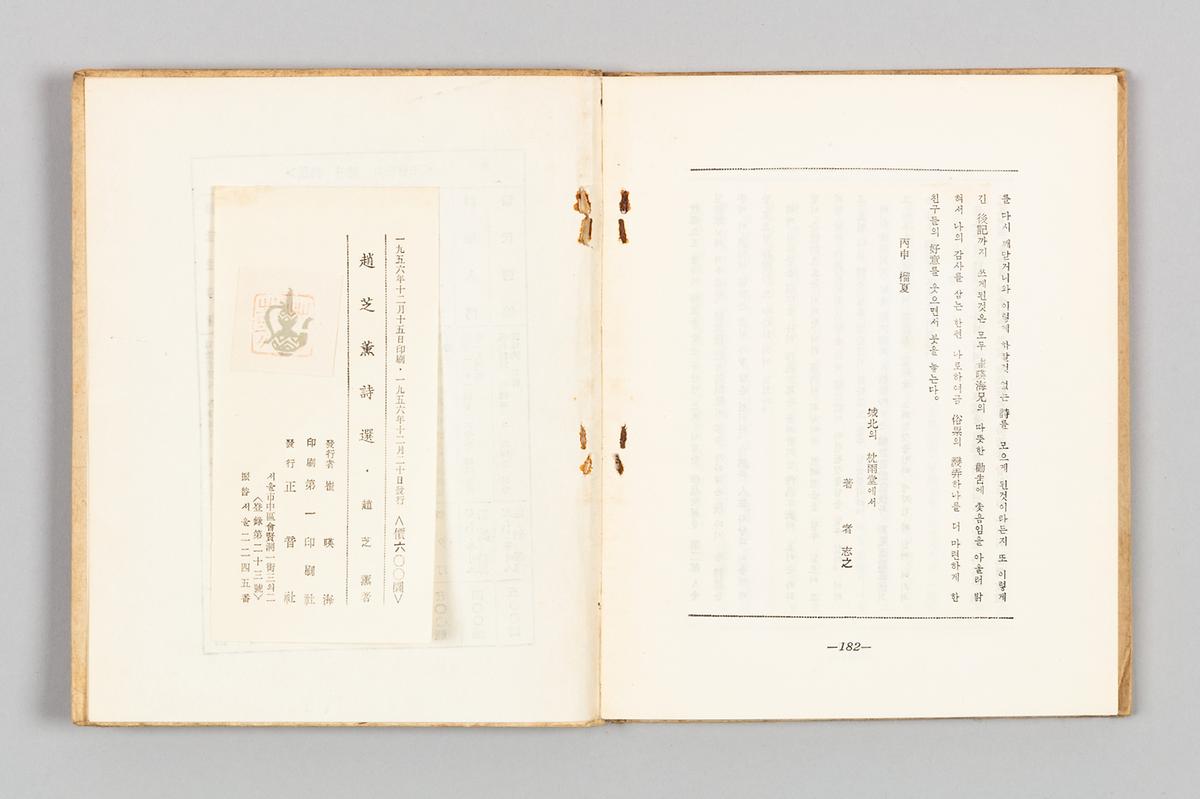 를 다시 깨닫거니와 이렇게 하잘것 없는 詩를 모으게 된것이라든지 또 이렇게
긴 後記까지 쓰게된것은 모두 崔暎海兄의 따뜻한 勸告에 좇음임을 아울러 밝
혀서 나의 감사를 삼는 한편 나로하여금 俗累의 謾弄하나를 더 마련하게 한
친구들의 好意를 웃으면서 붓을 놓는다。
丙申 榴夏
城北의 枕雨堂에서
著者 志之
—182—
一九五六年十二月十五日印刷・一九五六年十二月二十日發行 <價六〇〇圜>
趙芝薰詩選・趙芝薰著
發行者 崔暎海
印刷 第一印刷社
發行 正音社
서울市中區會賢洞一街三의二
<登錄第二十三號>
振替서울二二四五番